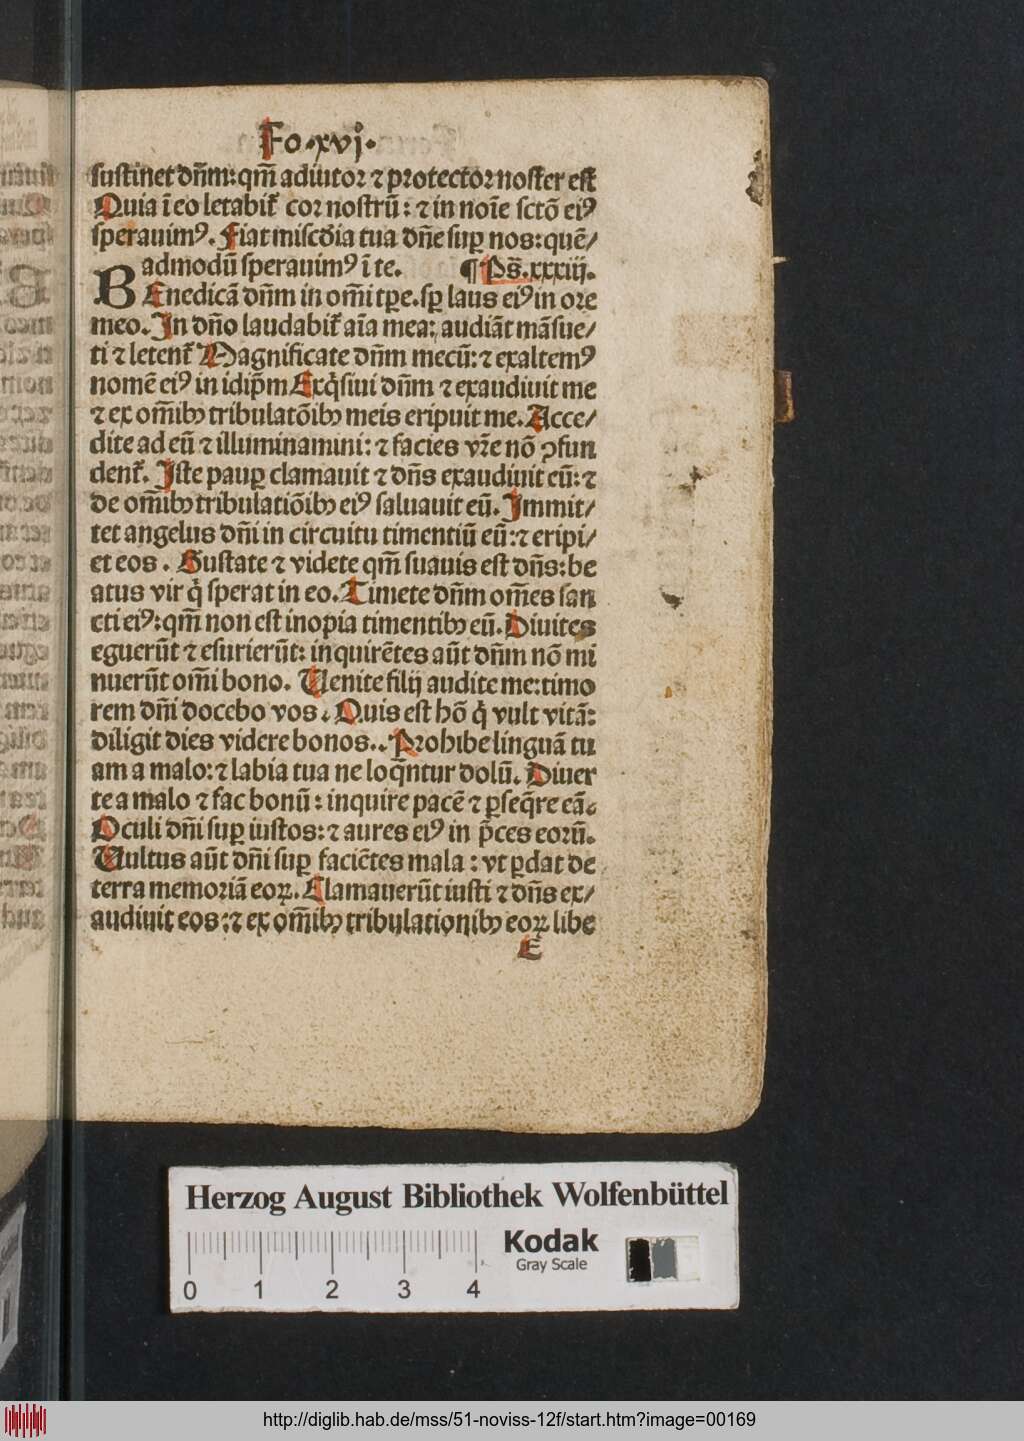 Fo.xvj.
sustinet dn̄m:qm̄ adiutor ⁊ protector noster est
Quia ī eo letabit̄ cor nostrū: ⁊ in noīe sctō eiꝰ
sperauimꝰ. Fiat miscdīa tua dn̄e suꝑ nos:quē/
admodū sperauimꝰ ī te. ¶ Ps̄.xxxiij.
BEnedicā dn̄m in om̄i tꝑe.sꝑ laus eiꝰ in ore
meo. In dn̄o laudabit̄ aīa mea: audiāt māsue/
ti ⁊ letent̄ Magnificate dn̄m mecū: ⁊ exaltemꝰ
nomē eiꝰ in idip̄m Exq̇siui dn̄m ⁊ exaudiuit me
⁊ ex om̄ibꝫ tribulatōibꝫ meis eripuit me. Acce/
dite ad eū ⁊ illuminamini: ⁊ facies vr̄e nō ꝯfun
dent̄. Iste pauꝑ clamauit ⁊ dn̄s exaudiuit eū: ⁊
de om̄ibꝫ tribulatiōibꝫ eiꝰ saluauit eū. Immit/
tet angelus dn̄i in circuitu timentiū eū: ⁊ eripi/
et eos. Gustate ⁊ videte qm̄ suauis est dn̄s: be
atus vir q̇ sperat in eo. Timete dn̄m om̄es san
cti eiꝰ: qm̄ non est inopia timentibꝫ eū. Diuites
eguerūt ⁊ esurierūt: inquirētes aūt dn̄m nō mi
nuerūt om̄i bono. Uenite filij audite me: timo
rem dn̄i docebo vos. Quis est hō q̇ vult vitā:
diligit dies videre bonos.. Prohibe linguā tu
am a malo: ⁊ labia tua ne loq̄ntur dolū. Diuer
te a malo ⁊ fac bonū: inquire pacē ⁊ ꝑseq̄re eā.
Oculi dn̄i suꝑ iustos: ⁊ aures eiꝰ in p̄ces eorū.
Uultus aūt dn̄i suꝑ faciētes mala: vt ꝑdat de
terra memoriā eoꝝ. Clamauerūt iusti ⁊ dn̄s ex/
audiuit eos: ⁊ ex om̄ibꝫ tribulationibꝫ eoꝝ libe
E
Herzog August Bibliothek Wolfenbüttel
Kodak
Gray Scale
0 1 2 3 4
http://diglib.hab.de/mss/51-noviss-12f/start.htm?image=00169